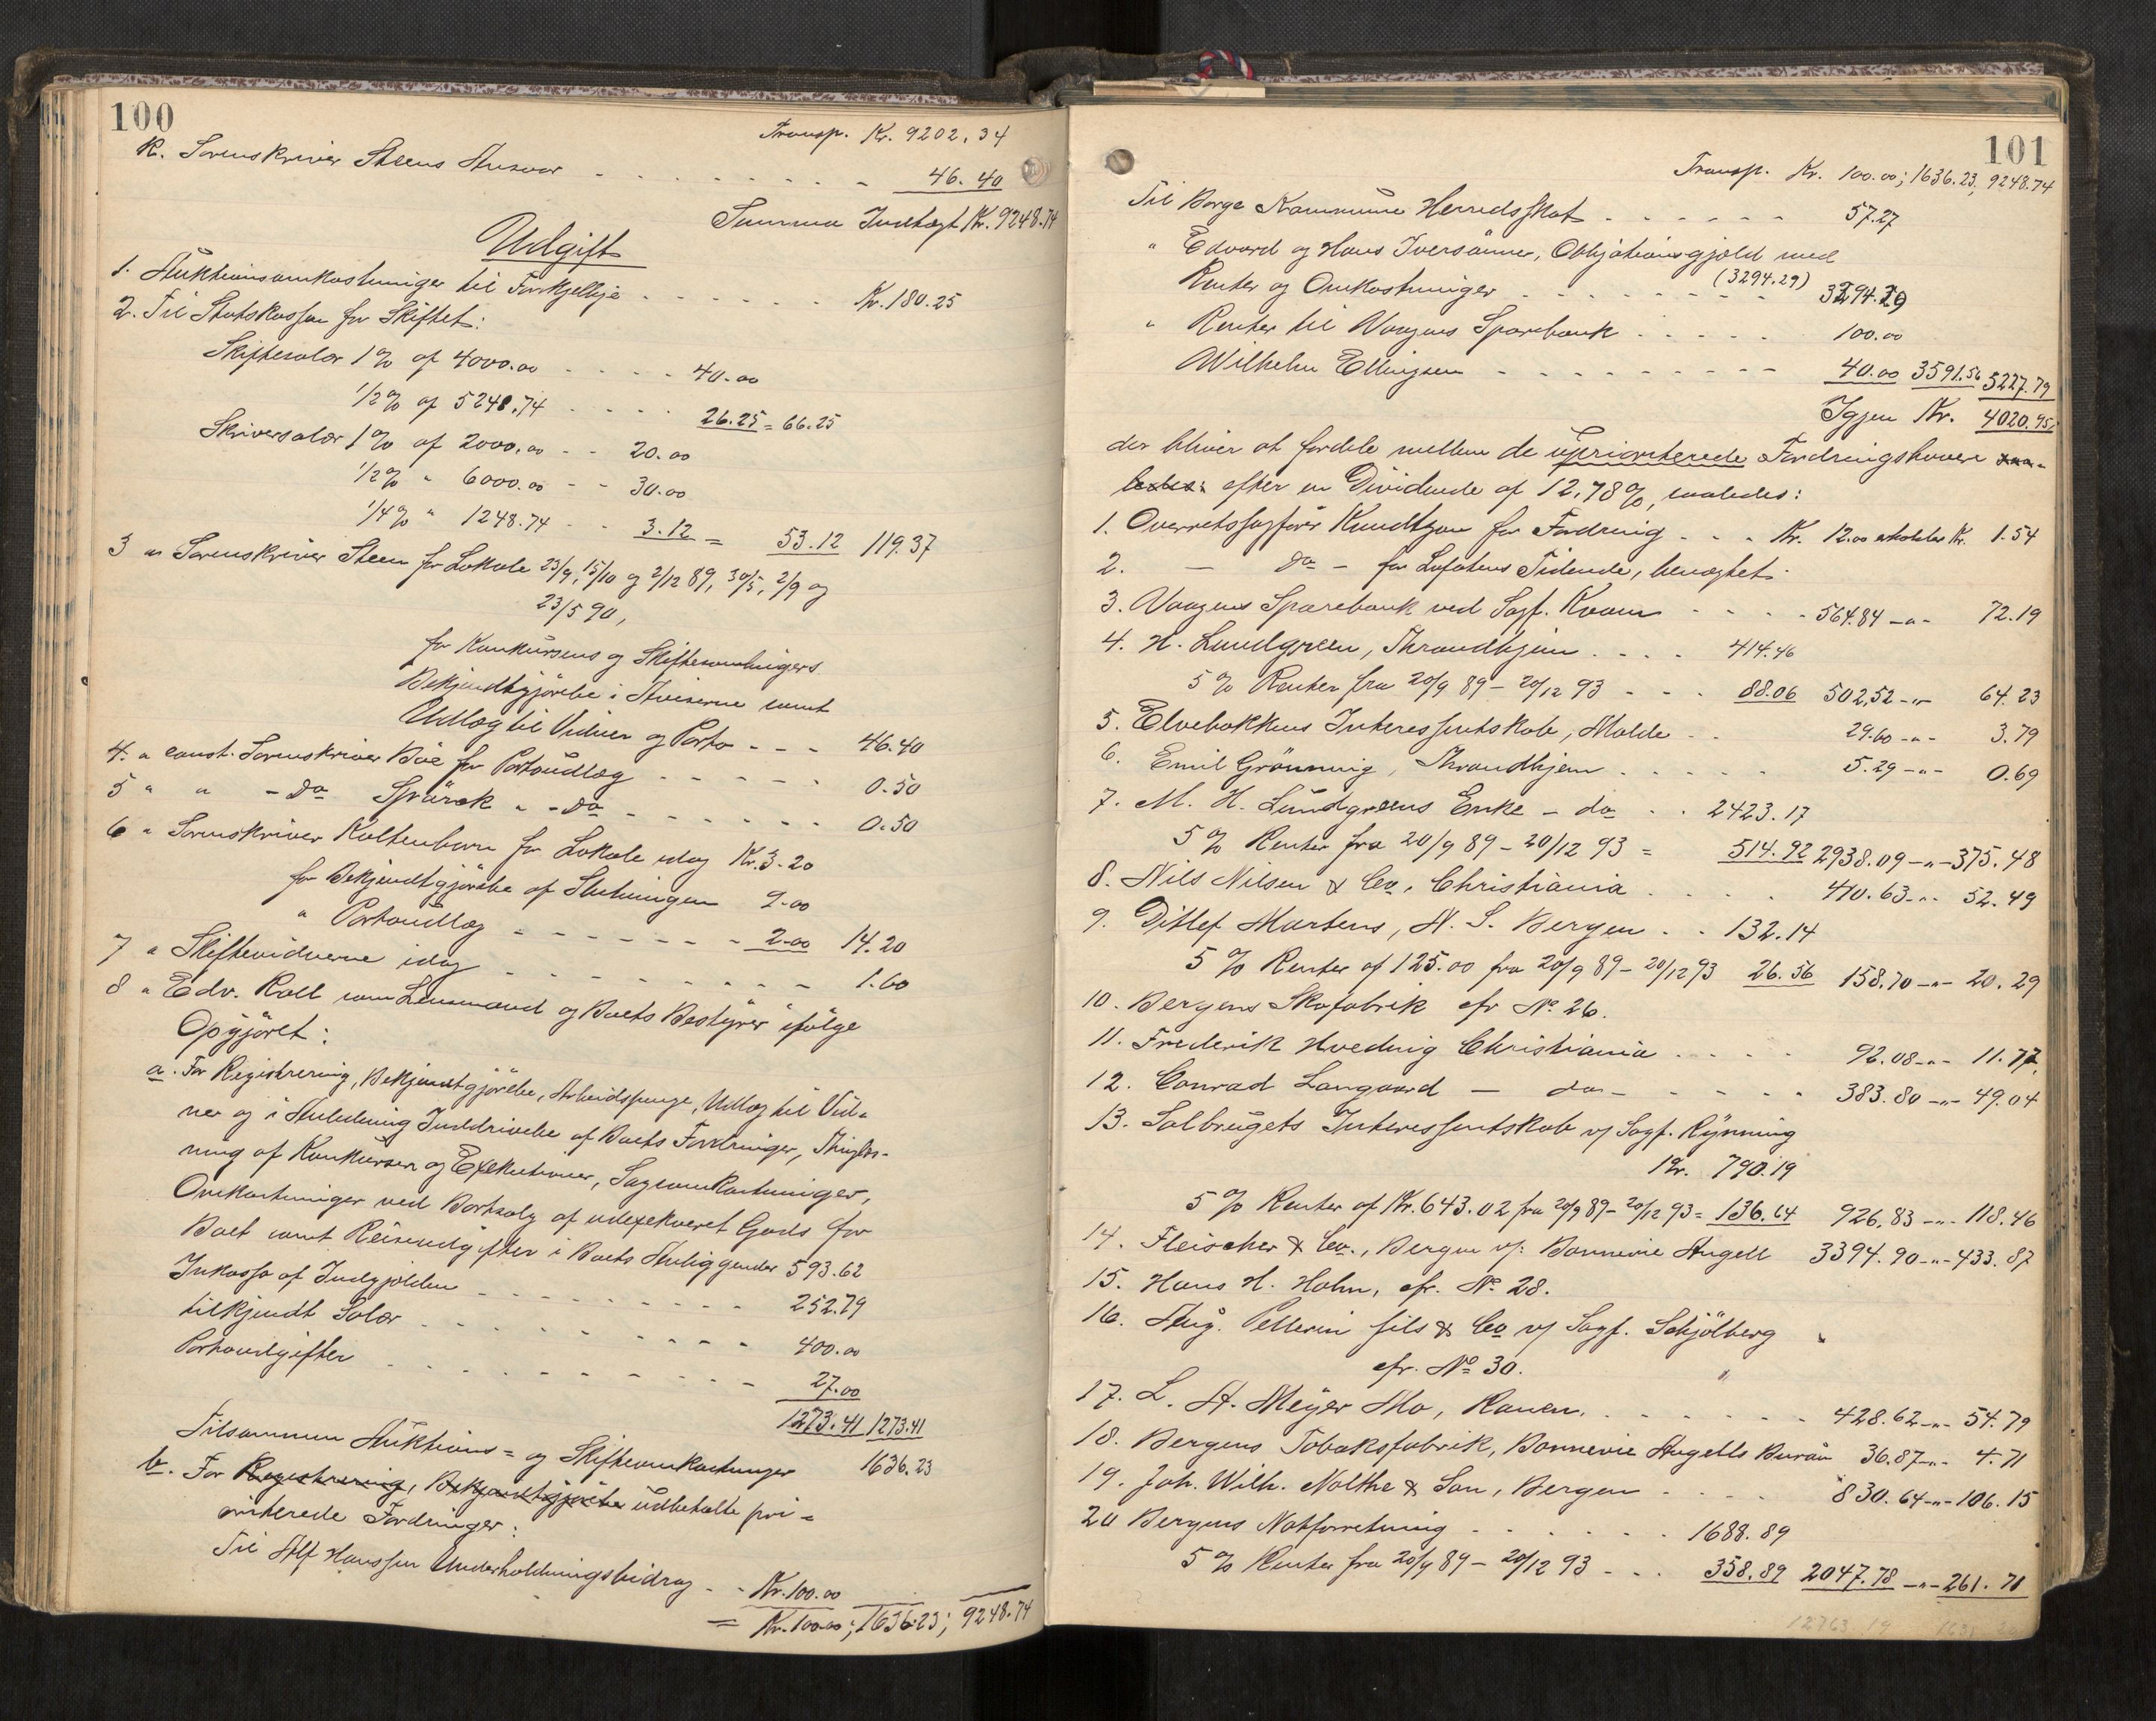 100
Transp. Kr. 9202.34
k. Sorenskriver Steens Ansvar - - - - - - 46.40
Summa Indtægt Kr. 9248.74
Udgift
1. Auktionsomkostninger til Forskjellige - - - - - - Kr. 180.25
2. Til Statskassen for Skiftet:
Skiftesalær 1% af 4000.00 - - - - 40.00
1/2% af 5248.74 - - - - 26.25 = 66.25
Skriversalær 1% af 2000.00 - - 20.00
1/2% " 6000.00 - - 30.00
1/4% " 1248.74 - - 3.12 = 53.12 119.37
3 " Sorenskriver Steen for Lokale 23/9, 15/10 og 2/12 89, 30/5, 2/9 og
23/5 90,
for Konkursens og Skiftesamlingers
Bekjendtgjörelse i Aviserne samt
Udlæg til Vidner og Porto - - - 46.40
4. " const. Sorenskriver Böe for Portoudlæg - - - - - 0.50
5 " " - do Spörck " - do - - - - - - 0.50
6 " Sorenskriver Kaltenborn for Lokale idag Kr. 3.20
for Bekjendtgjörelse af Slutningen 9.00
" Portoudlæg - - - - - - 2.00 14.20
7 " Skiftevidnerne idag - - - - - - - - 1.60
8 " Edv. Roll som Lensmand og Boets Bestyrer ifölge
Opgjöret:
a. For Registrering, Bekjendtgjörelse, Arbeidspenge, Udlæg til Vid-
ner og i Anledning Inddrivelse af Boets Fordringer, Thinglæs-
ning af Konkursen og Exekutioner, Sagsomkostninger,
Omkostninger ved Bortsalg af udexekveret Gods for
Boet samt Reiseudgifter i Boets Anliggender 593.62
Inkasso af Indgjælden - - - - - - - - 252.79
tilkjendt Salær - - - - - - - - 400.00
Portoudgifter - - - - - - - - 27.00
1273.41 1273.41
Tilsammen Auktions- og Skifteomkostninger 1636.23
b. For Registrering, Bekjendtgjörelse udbetalte pri-
oriterede Fordringer:
Til Alf Hanssen Underholdningsbidrag - - Kr. 100.00
= Kr. 100.00; 1636.23; 9248.74
101
Transp. Kr. 100.00; 1636.23; 9248.74
Til Borge Kommune Herredsskat - - - - - - 57.27
" Edvard og Hans Iversönner, Obligationsgjæld med
Renter og Omkostninger - - - - (3294.29) 3294.29
" Renter til Vaagens Sparebank - - - - - 100.00
Wilhelm Ellingsen - - - - - - - - 40.00 3591.56 5227.79
Igjen Kr. 4020.95
der bliver at fordele mellem de upriorterede Fordringshavere saa-
ledes: efter en Dividende af 12,78%, saaledes:
1. Overretssagförer Knudtzon for Fordring - - - Kr. 12.00 erholder Kr. 1.54
2. — do - for Lofotens Tidende, benægtet.
3. Vaagens Sparebank ved Sagf. Kvam - - - - 564.84 -"- 72.19
4. H. Lundgreen, Throndhjem . . . . 414.46
5% Renter fra 20/9 89 - 20/12 93 - - - 88.06 502,52 -"- 64.23
5. Elvebakkens Interessentskab, Molde - - 29.60 -"- 3.79
6. Emil Grönning, Throndhjem . . . . . 5.29 -"- 0.69
7. M. H. Lundgreens Enke - do - - 2423.17
5% Renter fra 20/9 89 - 20/12 93 = 514.92 2938.09 -"- 375.48
8. Nils Nilsen & Co, Christiania . . . . 410.63 -"- 52.49
9. Ditlef Martens, N. S. Bergen - - 132.14
5% Renter af 125.00 fra 20/9 89 - 20/12 93 26.56 158.70 -"- 20.29
10. Bergens Skofabrik cfr No. 26.
11. Frederik Hvednig Christiania . . . . 92.08 -"- 11.77
12. Conrad Langaard — do - - - - - 383.80 -"- 49.04
13. Salbrugets Interessentskab v/ Sagf. Rynning
Kr. 790.19
5% Renter af Kr. 643.02 fra 20/9 89 - 20/12 93 = 136.64 926.83 -"- 118.46
14. Fleischer & Co., Bergen v/: Bonnevie Angell 3394.90 -"- 433.87
15. Hans H. Holm, cfr. No. 28.
16. Aug. Pellerin fils & Co v/ Sagf. Schjölberg
cfr. No 30.
17. L. A. Meyer Mo, Ranen. - - - - - - 428.62 -"- 54.79
18. Bergens Tobaksfabrik, Bonnevie Angells Bureau 36.87 -"- 4.71
19. Joh. Wilh. Nolthe & Sön, Bergen - - - - 830.64 -"- 106.15
20 Bergens Notforretning - - - - - - 1688.89
5% Renter fra 20/9 89 - 20/12 93 - - - 358.89 2047.78 -"- 261.71
12763.19